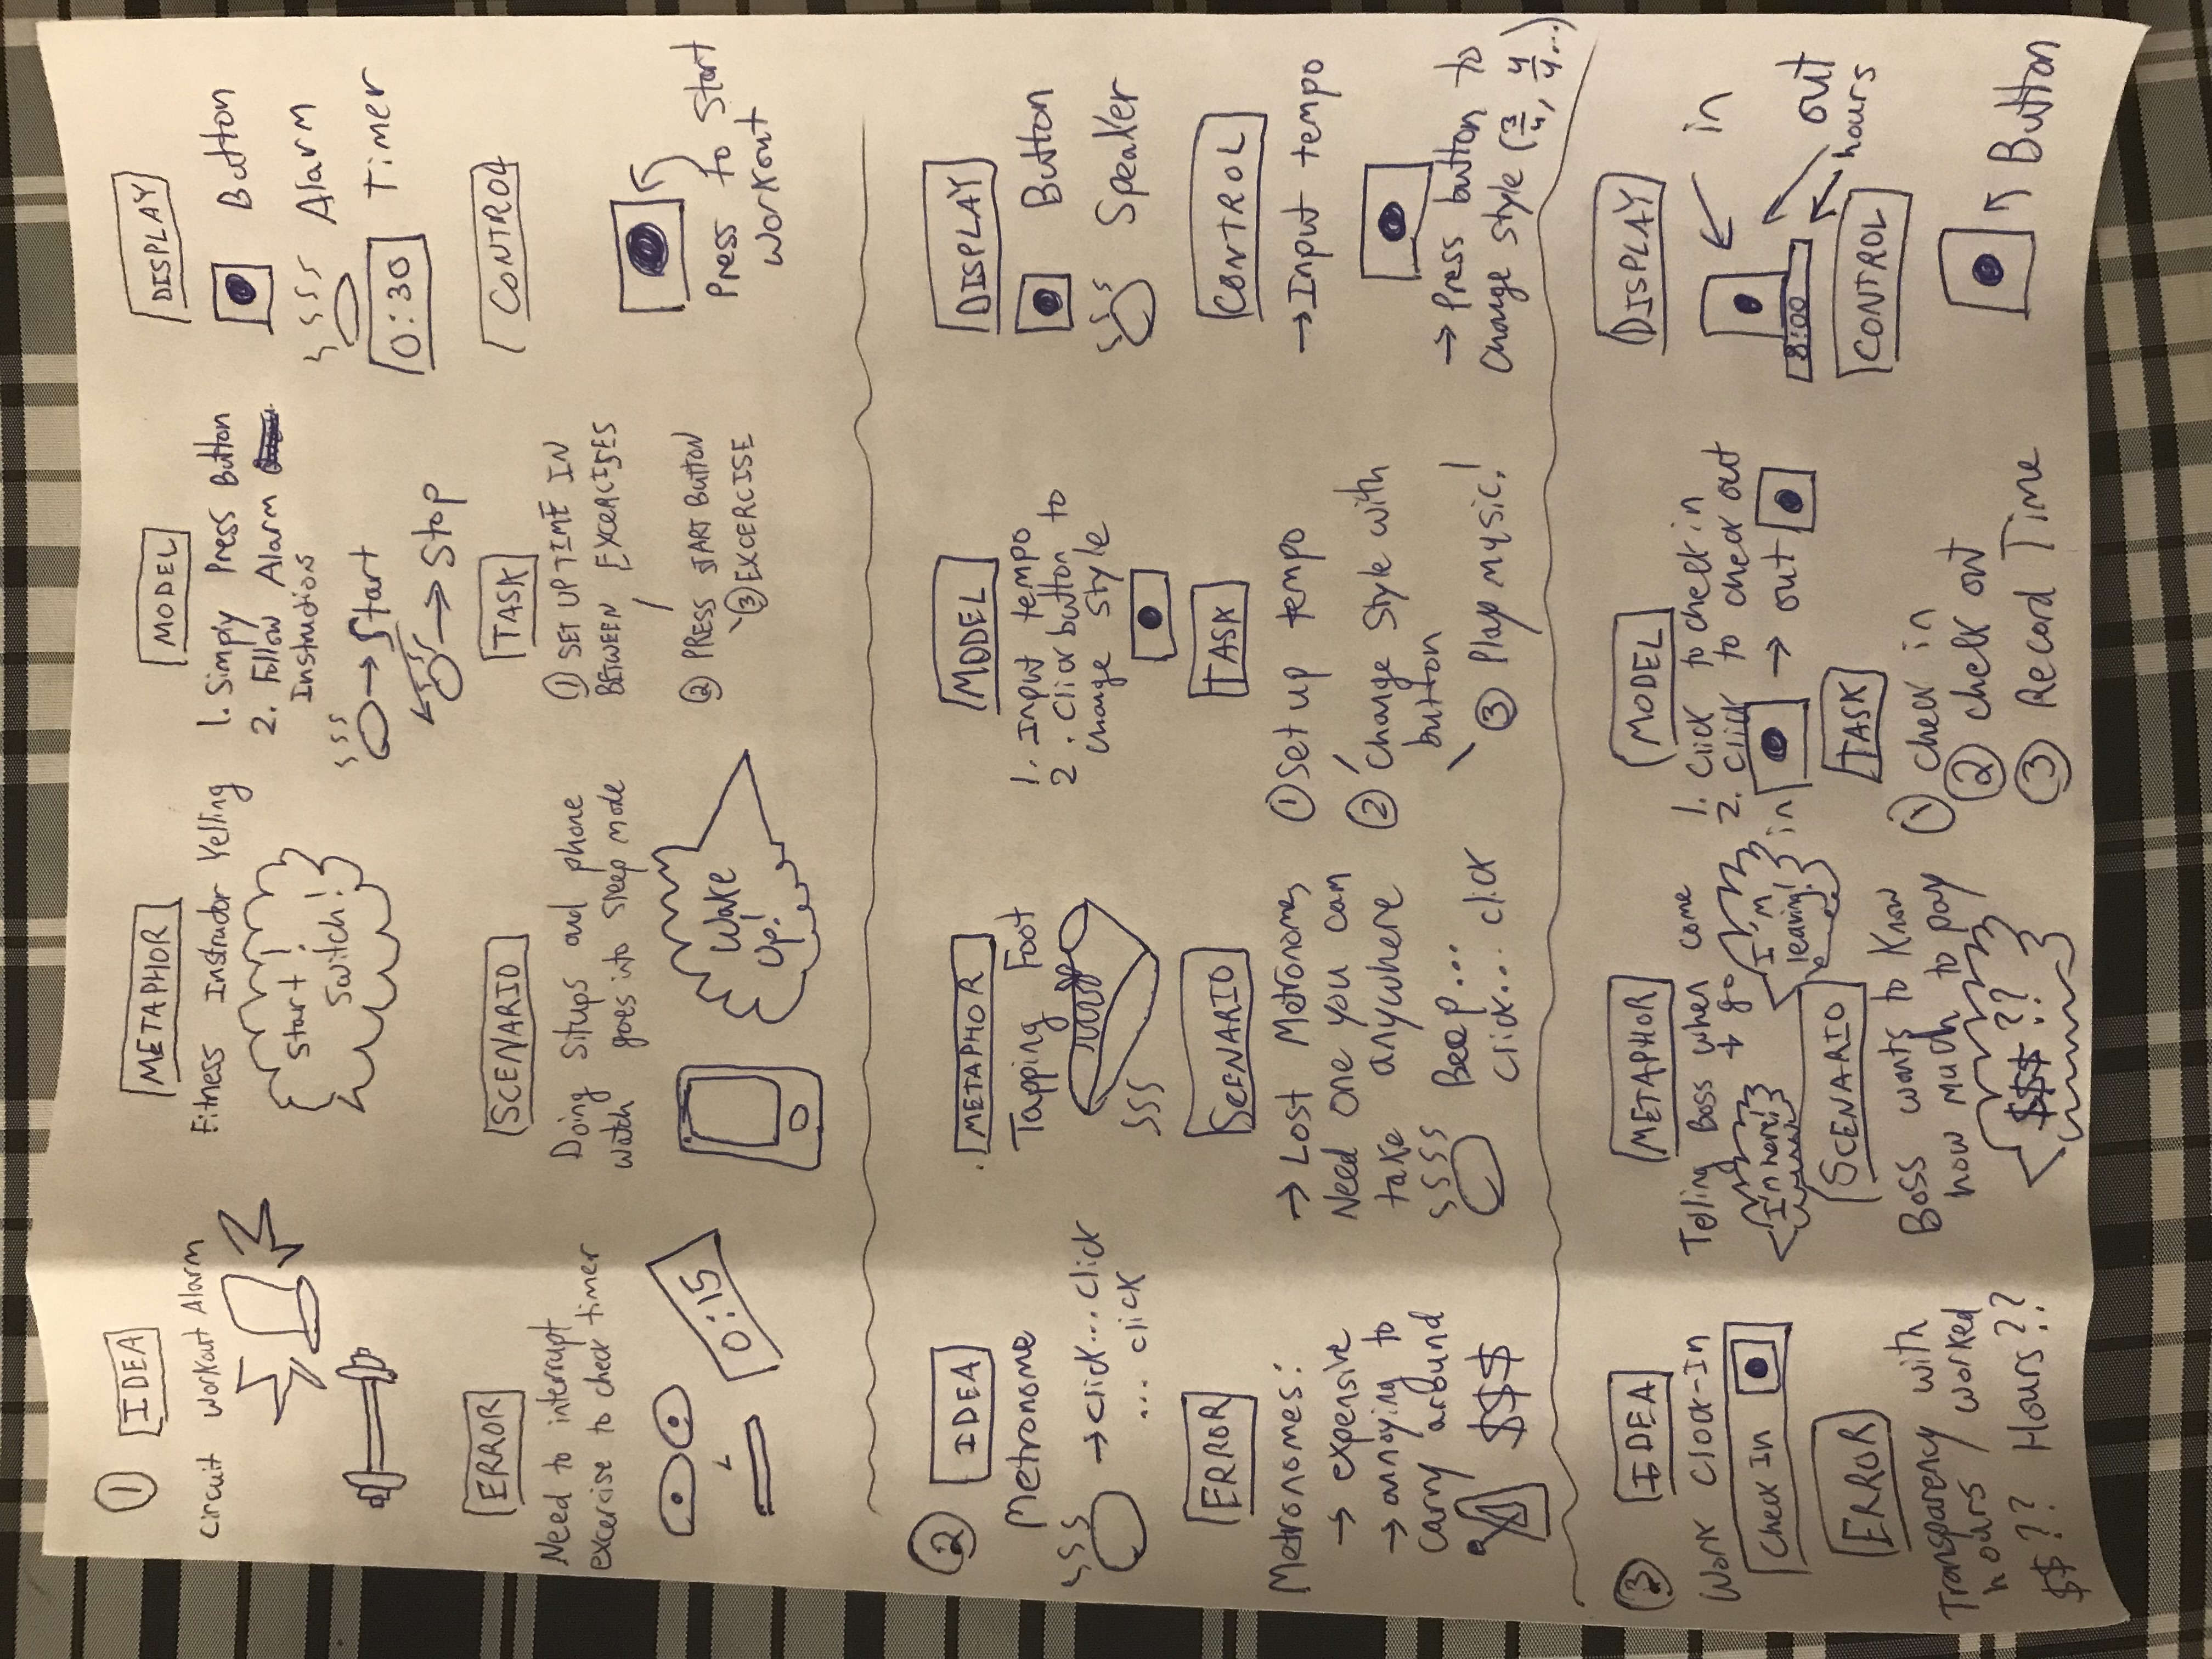 1
IDEA
Circuit Workout Alarm
METAPHOR
Fitness Instructor Yelling
Start!
Switch!
MODEL
1. Simply Press Button
2. Follow Alarm
Instructions
→ Start
→ Stop
DISPLAY
Button
Alarm
0:30 Timer
ERROR
Need to interrupt
excercise to check timer
0:15
SCENARIO
Doing situps and phone
watch goes into sleep mode
Wake
Up!
TASK
① SET UP TIME IN
BETWEEN EXCERCISES
② PRESS START BUTTON
③ EXCERCISE
CONTROL
Press to Start
Workout
2
IDEA
Metronome
→ click... click
... click
METAPHOR
Tapping Foot
MODEL
1. Input tempo
2. Click button to
change style
DISPLAY
Button
Speaker
ERROR
Metronomes:
→ expensive
→ annoying to
carry around
$$$
SCENARIO
→ Lost Metronome,
Need one you can
take anywhere
Beep...
click... click
TASK
① Set up tempo
② Change Style with
button
③ Play music!
CONTROL
→ Input tempo
→ Press button to
Change style (3/4, 4/4...)
3
IDEA
Work Clock-In
Check In
METAPHOR
Telling Boss when come
+ go
I'm here!
I'm
leaving!
MODEL
1. Click to check in
2. Click to check out
in → out
DISPLAY
in
8:00
out
hours
ERROR
Transparency with
hours worked
$$?? Hours??
SCENARIO
Boss wants to know
how much to pay
$$$??
TASK
① Check in
② check out
③ Record Time
CONTROL
Button